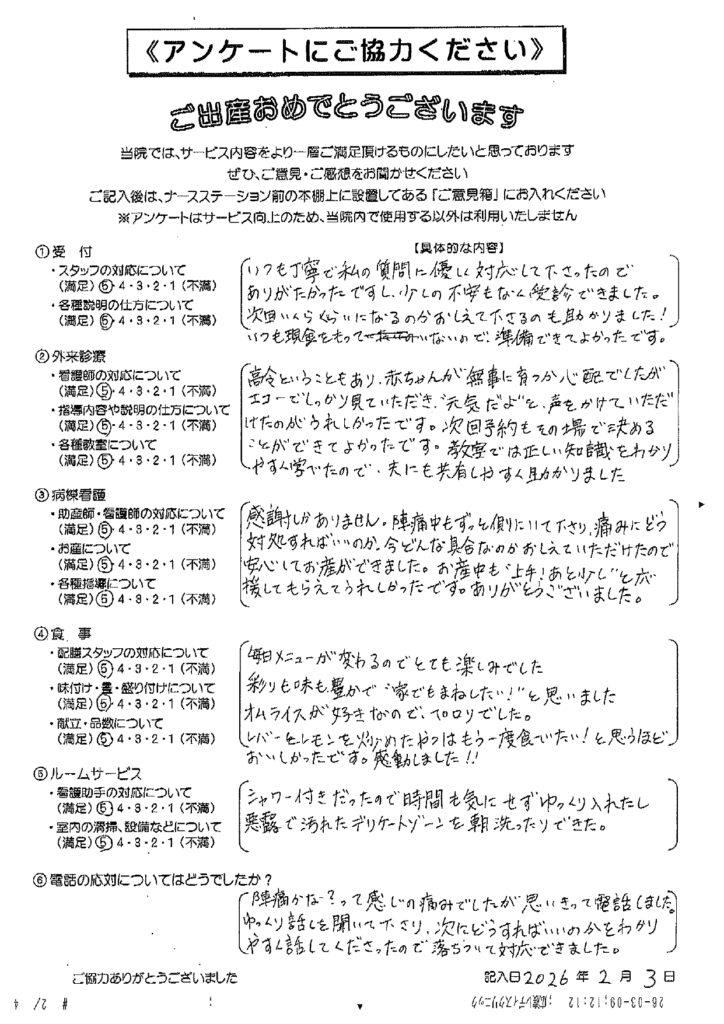 《アンケートにご協力ください》
ご出産おめでとうございます
当院では、サービス内容をより一層ご満足頂けるものにしたいと思っております
ぜひ、ご意見・ご感想をお聞かせください
ご記入後は、ナースステーション前の本棚上に設置してある「ご意見箱」にお入れください
※アンケートはサービス向上のため、当院内で使用する以外は利用いたしません
①受 付
【具体的な内容】
・スタッフの対応について
(満足)⑤・4・3・2・1(不満)
・各種説明の仕方について
(満足)⑤・4・3・2・1(不満)
いつも丁寧で私の質問に優しく対応して下さったので
ありがたかったですし、少しの不安もなく受診できました。
次回いくらくらいになるのかおしえて下さるのも助かりました!
いつも現金をもって いないので、準備できてよかったです。
②外来診療
・看護師の対応について
(満足)⑤・4・3・2・1(不満)
・指導内容や説明の仕方について
(満足)⑤・4・3・2・1(不満)
・各種教室について
(満足)⑤・4・3・2・1(不満)
高令ということもあり、赤ちゃんが無事に育つか心配でしたが
エコーでしっかり見ていただき、"元気だよ"と、声をかけていただ
けたのがうれしかったです。次回予約もその場で決める
ことができてよかったです。教室では正しい知識をわかり
やすく学べたので、夫にも共有しやすく助かりました
③病棟看護
・助産師・看護師の対応について
(満足)⑤・4・3・2・1(不満)
・お産について
(満足)⑤・4・3・2・1(不満)
・各種指導について
(満足)⑤・4・3・2・1(不満)
感謝しかありません。陣痛中もずっと側にいて下さり、痛みにどう
対処すればいいのか、今どんな具合なのかおしえていただけたので
安心してお産ができました。お産中も"上手!あと少し"と応
援してもらえてうれしかったです。ありがとうございました。
④食 事
・配膳スタッフの対応について
(満足)⑤・4・3・2・1(不満)
・味付け・量・盛り付けについて
(満足)⑤・4・3・2・1(不満)
・献立・品数について
(満足)⑤・4・3・2・1(不満)
毎日メニューが変わるのでとても楽しみでした
彩りも味も豊かで"家でもまねしたい!"と思いました
オムライスが好きなので、ペロリでした。
レバーをレモンを炒めたやつはもう一度食べたい!と思うほど
おいしかったです。感動しました!!
⑤ルームサービス
・看護助手の対応について
(満足)⑤・4・3・2・1(不満)
・室内の清掃、設備などについて
(満足)⑤・4・3・2・1(不満)
シャワー付きだったので時間も気にせずゆっくり入れたし
悪露で汚れたデリケートゾーンを朝洗ったりできた。
⑥電話の応対についてはどうでしたか?
陣痛かな?って感じの痛みでしたが思いきって電話しました。
ゆっくり話しを聞いて下さり、次にどうすればいいのかをわかり
やすく話してくださったので落ちついて対応できました。
ご協力ありがとうございました
記入日2026年2月3日
26-03-09;12:12 ;
レディスクリニック
# 2/ 4